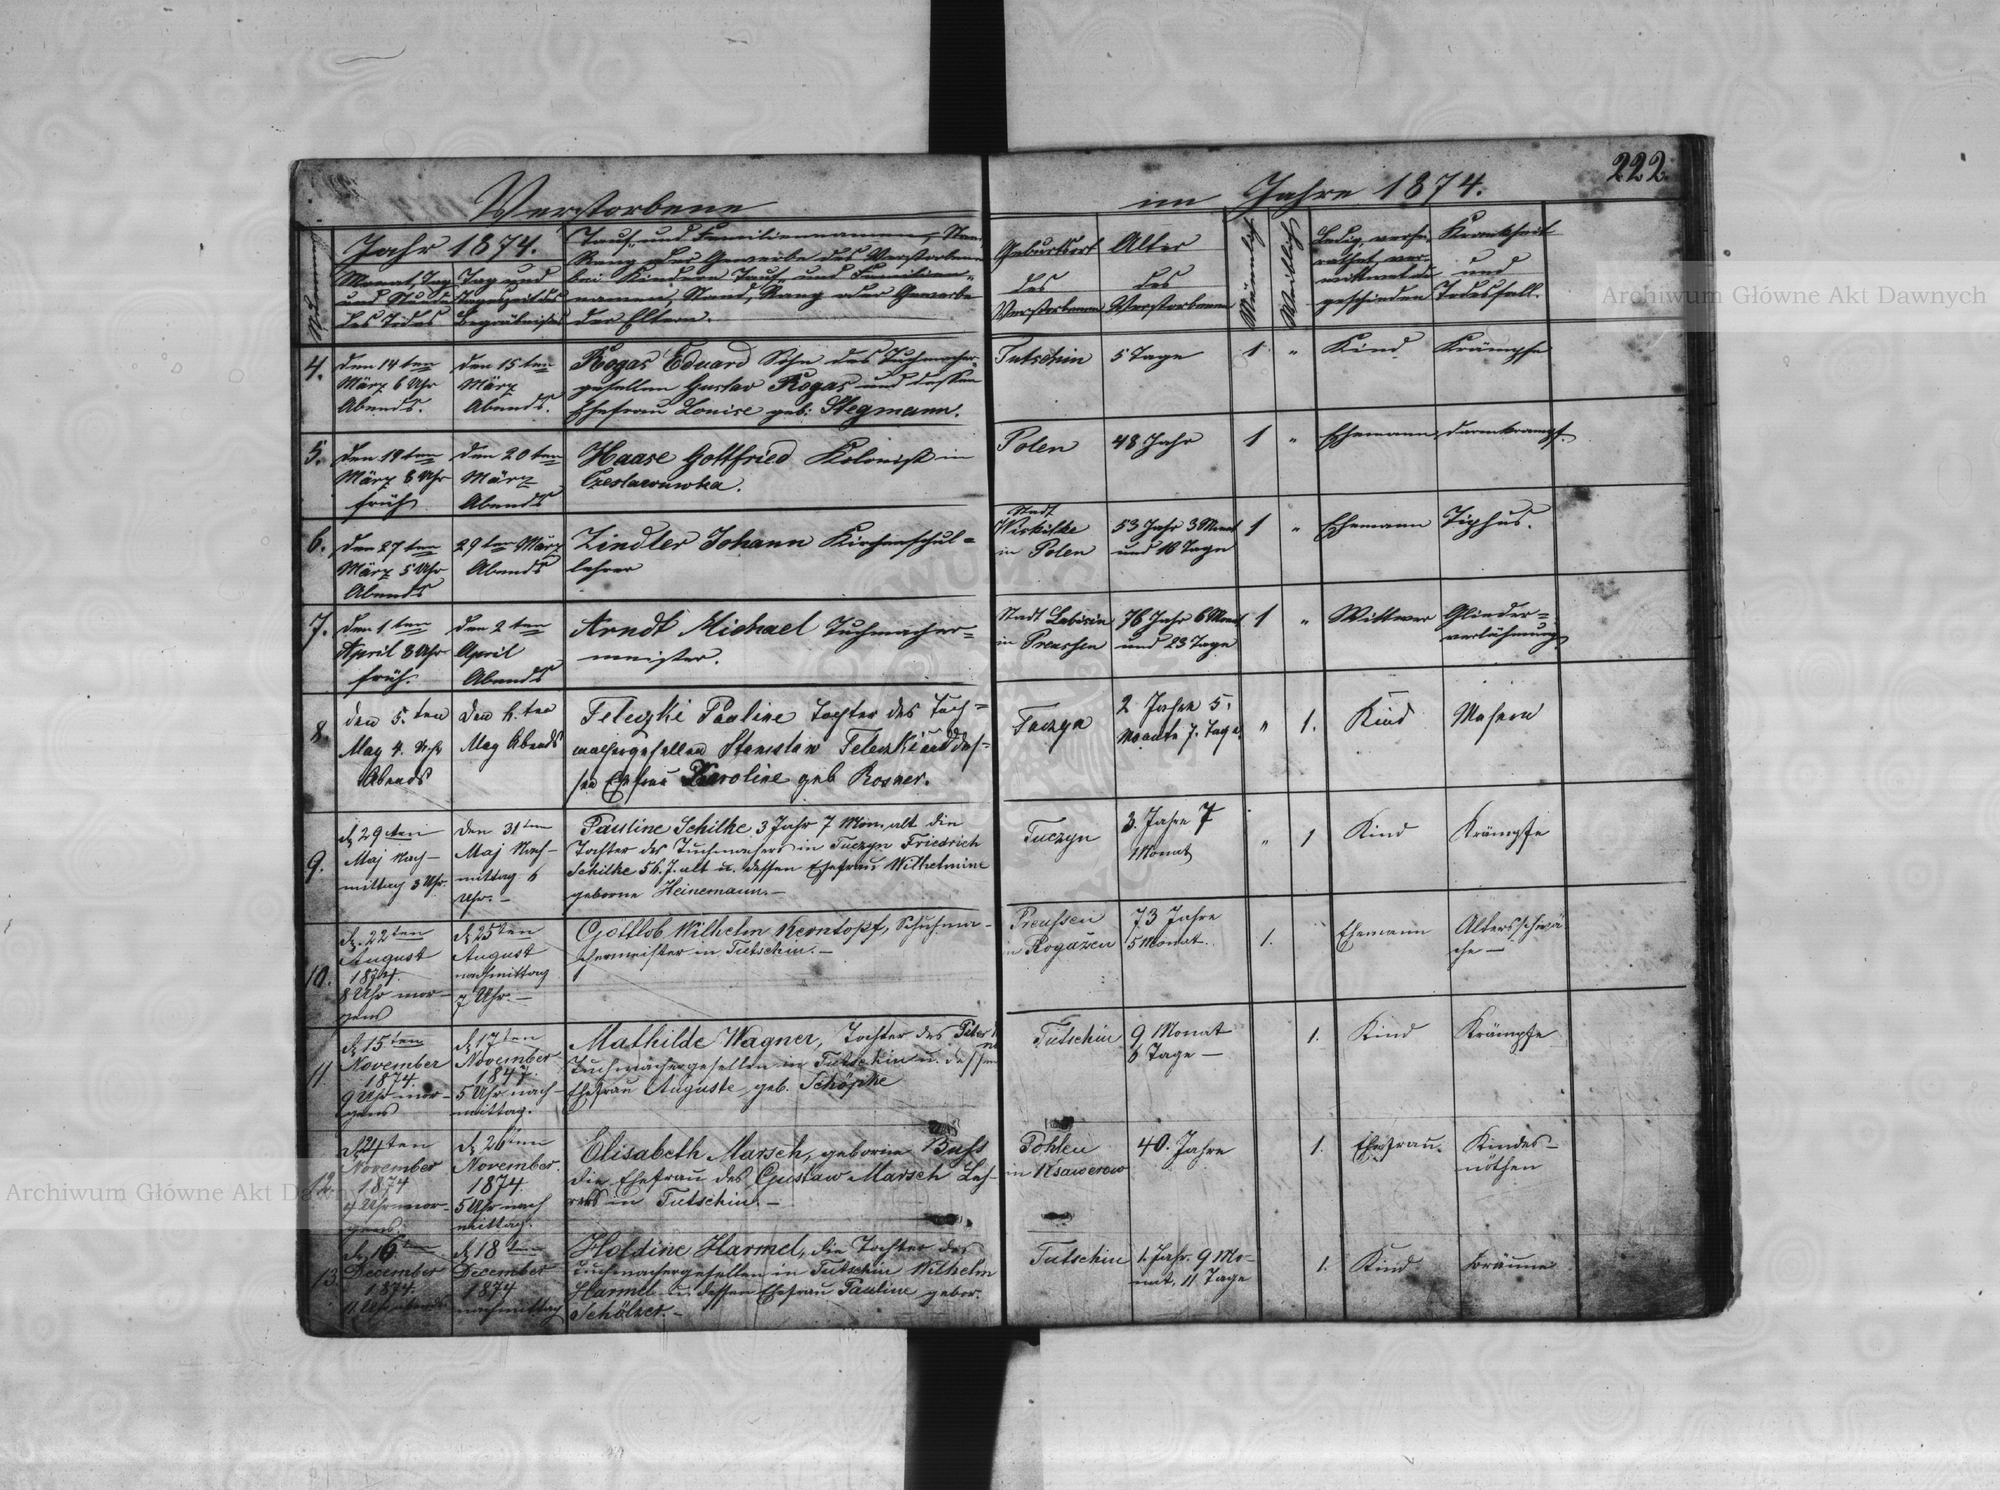 222.
Verstorbene im Jahre 1874.
Jahr 1874.
Monat, Tag
und Stunde
des Todes
Tag und
Tageszeit des
Begräbnisses
Tauf- und Familiennamen, Stand
Rang oder Gewerbe des Verstorbenen
bei Kindern Tauf- und Familien-
namen, Stand, Rang oder Gewerbe
der Eltern.
Geburtsort
des
Verstorbenen
Alter
des
Verstorbenen
Männlich
Weiblich
Ledig, verhei-
rathet, ver-
wittwet od.
geschieden
Krankheit
und
Todesfall.
4.
den 14ten
März 6 Uhr
Abends.
den 15ten
März
Abends.
Rogas Eduard Sohn des Tuchmacher-
gesellen Gustav Rogas und dessen
Ehefrau Louise geb: Stegmann.
Tutschin
5 Tage
1 "
Kind
Krämpfe
5.
den 19ten
März 8 Uhr
früh
den 20ten
März
Abends
Haase Gottfried Kolonist in
Polen
48 Jahr
1 "
Ehemann
darmkrampf.
6.
den 27ten
März 5 Uhr
Abends
29ten März
Abends
Zindler Johann Kirchenschul=
lehrer
Stadt
in Polen
53 Jahr 3 Monat
und 18 Tage
1 "
Ehemann
Tiphus.
7.
den 1.ten
April 8 Uhr
früh.
den 2ten
April
Abends
Arndt Michael Tuchmacher=
meister.
Stadt Labisin
in Preussen
76 Jahr 6 Monat
und 23 Tage
1 "
Wittwer
Glieder=
verlähmung
8.
den 5.ten
May 4. Uhr
Abends
den 6.ten
May Abends
Feleszki Pauline Tochter des Tuch=
machergesellen Stanislaw Feleszki und des-
sen Ehefrau Karoline geb Rosner.
Tuczyn
2 Jahre 5.
Monate 7. Tage.
" 1.
Kind
Masern
9.
d. 29ten
Maj Nach-
mittag 3 Uhr.
den 31ten
Maj Nach-
mittag 6
Uhr. -
Pauline Schilke 3 Jahr 7 Mon. alt die
Tochter des Tuchmachers in Tuczyn Friedrich
Schilke 56. J. alt u. dessen Ehefrau Wilhelmine
geborne Heinemann. -
Tuczyn
3. Jahre 7
Monat
" 1
Kind
Krämpfe
10.
d. 22ten
August
1874.
8 Uhr mor-
gens
d. 25ten
August
nachmittag
7 Uhr. -
Gottlob Wilhelm Kerntopf, Schuhma-
chermeister in Tutschin. -
Preussen
in Rogazen
73 Jahre
5 Monat.
1.
Ehemann
Altersschwä
che -
11.
d. 15ten
November
1874.
9 Uhr mor-
gens
d. 17ten
November
1847.
5 Uhr nach-
mittag.
Mathilde Wagner, Tochter des Peter
Tuchmachergesellen in Tutschin u. dessen
Ehefrau Auguste geb. Schöpke
Tutschin
9 Monat
6 Tage -
1.
Kind
Krämpfe
12.
d. 24ten
November
1874
4 Uhr mor-
gens.
d. 26ten
November.
1874.
5 Uhr nach
mittag.
Elisabeth Marsch, geborne Buss
die Ehefrau des Gustaw Marsch Leh-
rers in Tutschin. -
Pohlen
in Ksawerow
40. Jahre
1.
Ehefrau.
Kindes-
nöthen
13.
d. 16ten
December
1874.
d. 18ten
December
1874
nachmittag
Holdine Harmel, die Tochter des
Tuchmachergesellen in Tutschin Wilhelm
Harmel u. dessen Ehefrau Pauline gebor.
Schölzer. -
Tutschin
1. Jahr. 9 Mo-
nat, 11 Tage
1.
Kind
Bräune
Archiwum Główne Akt Dawnych
Archiwum Główne Akt Dawnych